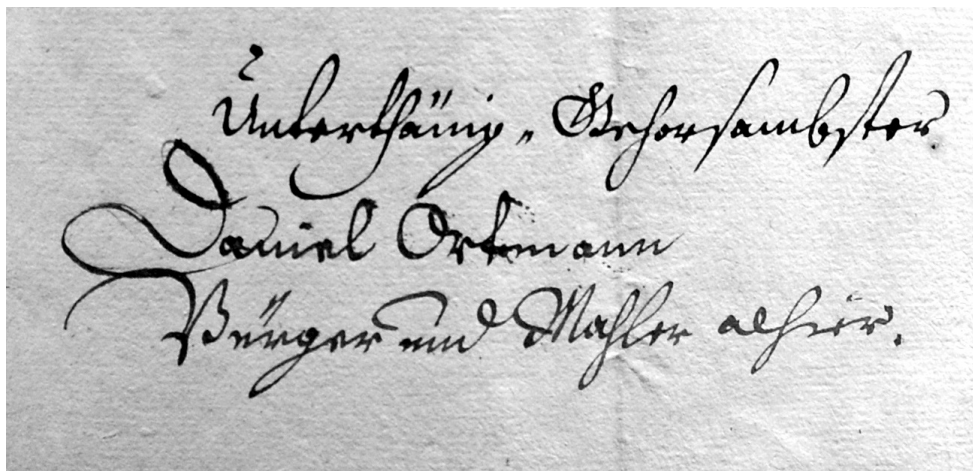 Unterthänig-Gehorsambster
Daniel Ortmann
Bürger und Mahler alhier.